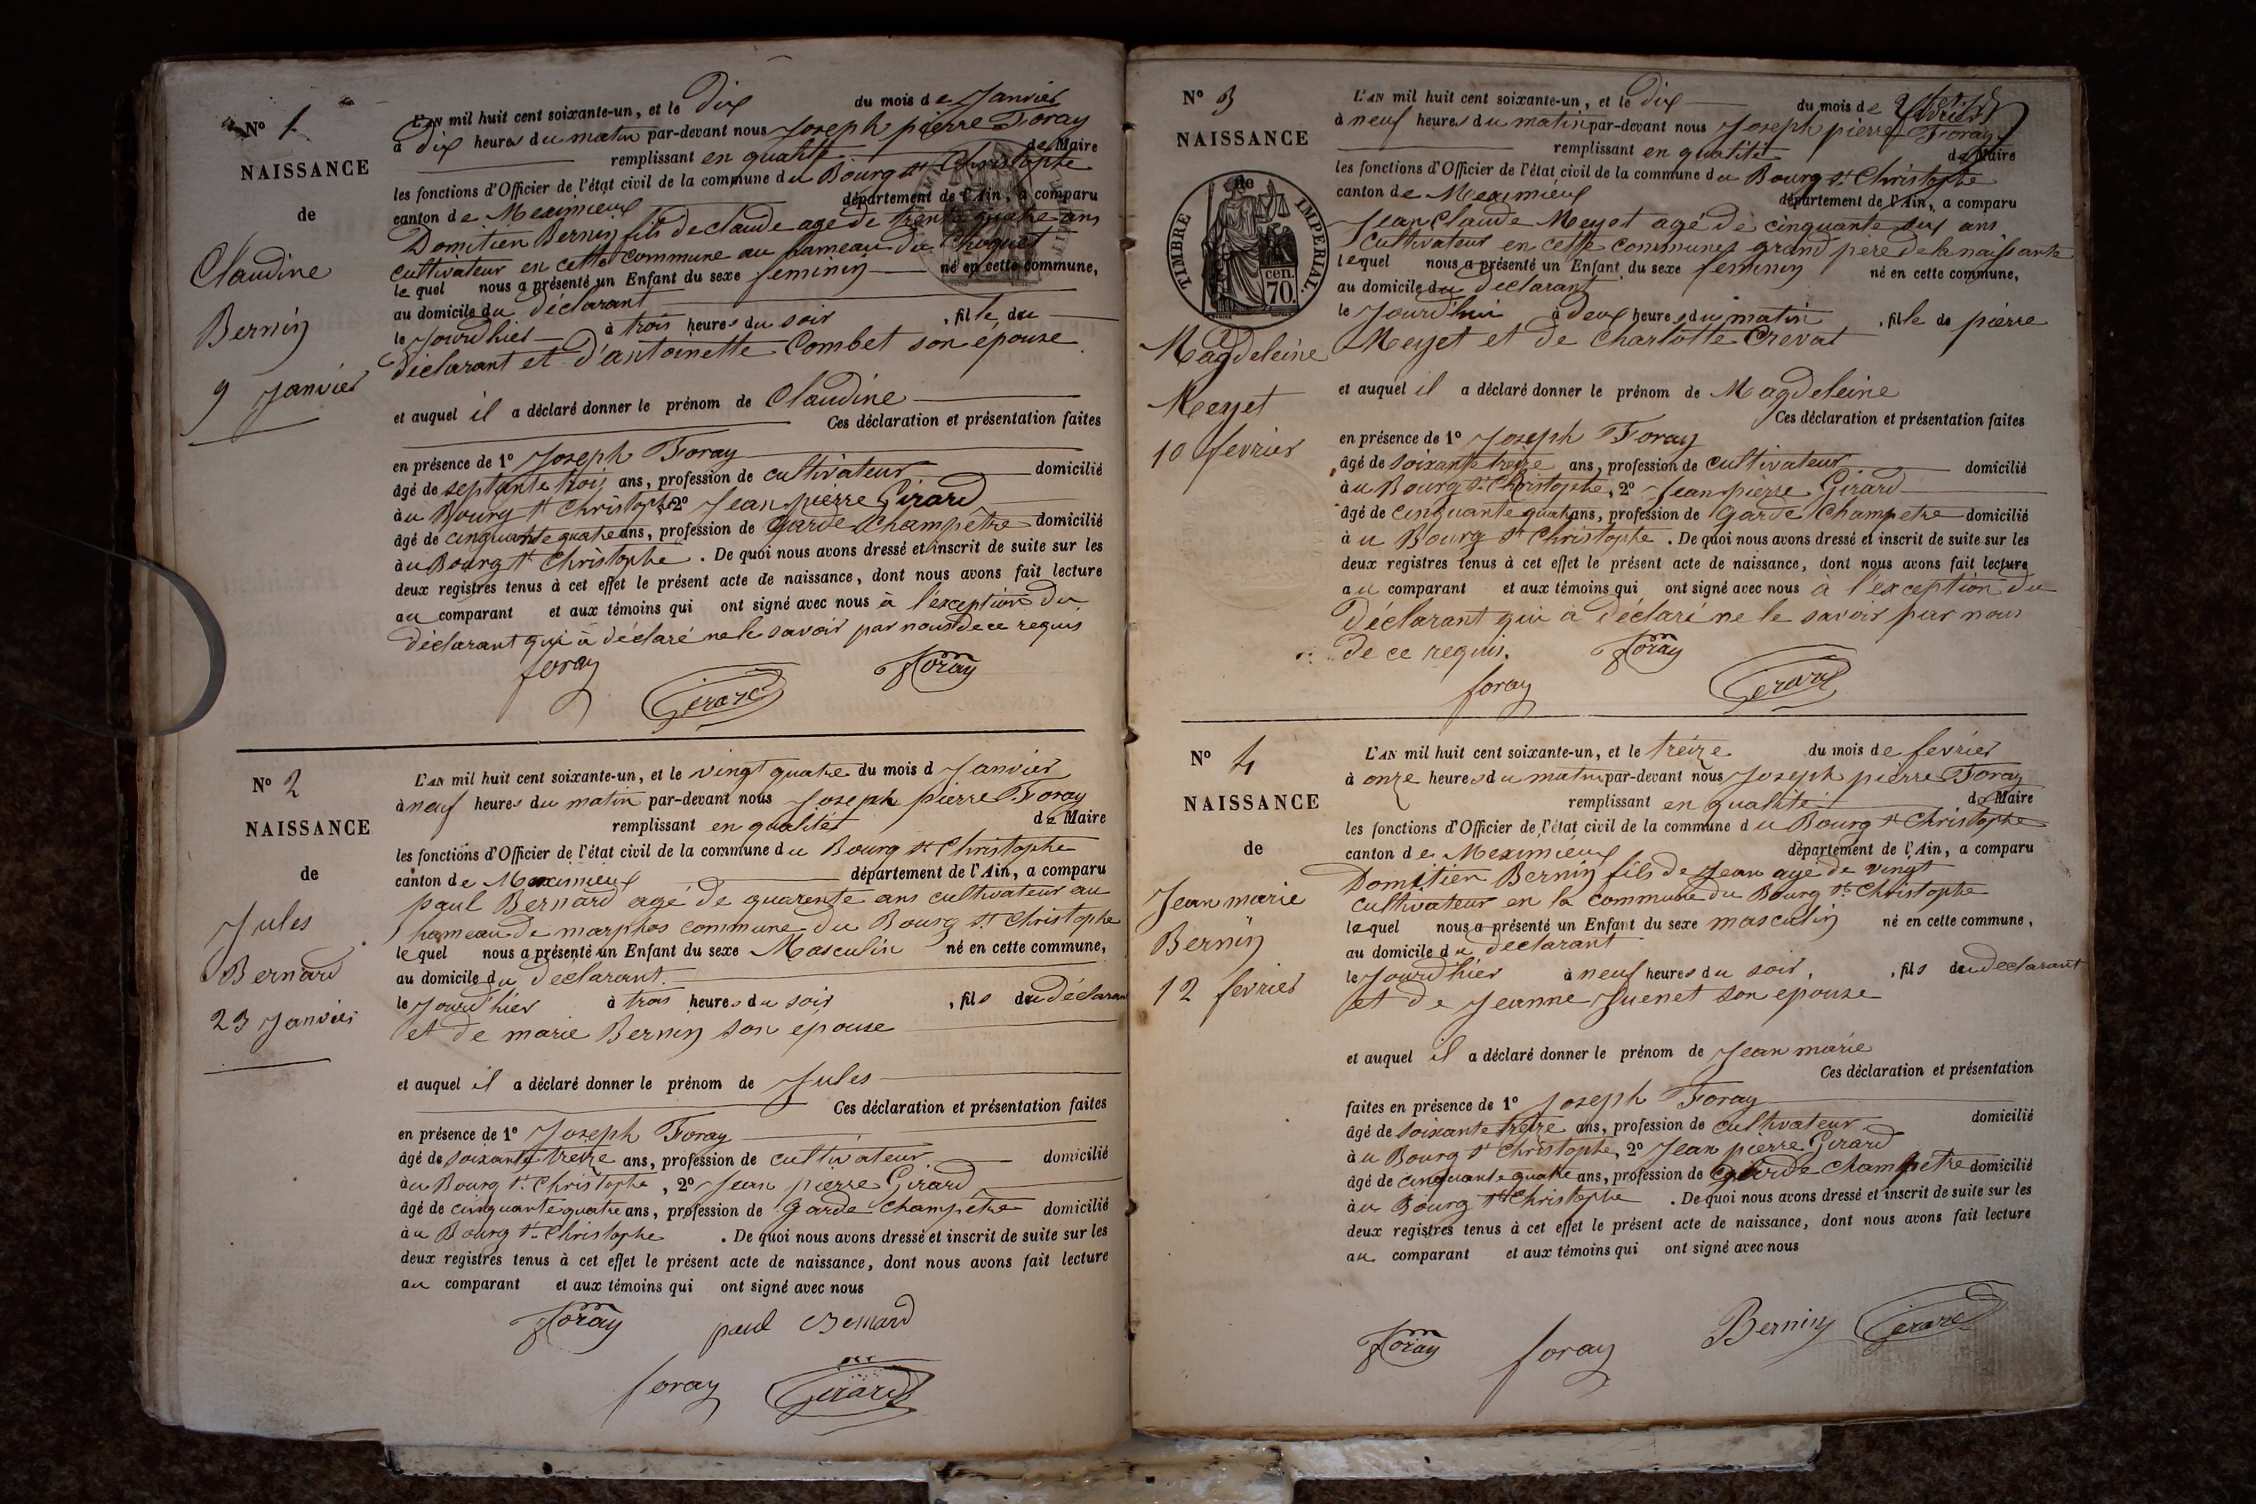 N° 1
NAISSANCE
de
Claudine
Bernin
9 Janvier
L'AN mil huit cent soixante-un, et le dix du mois de Janvier
à dix heures du matin par-devant nous Joseph pierre Foray
remplissant en qualité de Maire
les fonctions d'Officier de l'état civil de la commune du Bourg St Christophe
canton de Meximieux département de l'Ain, a comparu
Domitien Bernin fils de claude agé de trente quatre ans
cultivateur en cette commune au hameau du Choquet
le quel nous a présenté un Enfant du sexe feminin né en cette commune,
au domicile du déclarant
le Jourd'hier à trois heures du soir, fille du
déclarant et d'antoinette Combet son épouse
et auquel il a déclaré donner le prénom de Claudine
Ces déclaration et présentation faites
en présence de 1° Joseph Foray
âgé de septante trois ans, profession de cultivateur domicilié
à u Bourg St Christophe 2° Jean pierre Girard
âgé de cinquante quatre ans, profession de Garde Champêtre domicilié
à u Bourg St Christophe. De quoi nous avons dressé et inscrit de suite sur les
deux registres tenus à cet effet le présent acte de naissance, dont nous avons fait lecture
au comparant et aux témoins qui ont signé avec nous à l'exception du
déclarant qui à déclaré ne le savoir par nous de ce requis
foray Girard Foray
N° 2
NAISSANCE
de
Jules
Bernard
23 Janvier
L'AN mil huit cent soixante-un, et le vingt quatre du mois d Janvier
à neuf heures du matin par-devant nous Joseph pierre Foray
remplissant en qualité de Maire
les fonctions d'Officier de l'état civil de la commune du Bourg St Christophe
canton de Meximieux département de l'Ain, a comparu
paul Bernard agé de quarente ans cultivateur au
hameau de marphos commune du Bourg St Christophe
le quel nous a présenté un Enfant du sexe Masculin né en cette commune,
au domicile du declarant.
le Jourd'hier à trois heures du soir, fils du déclarant
et de marie Bernin son epouse
et auquel il a déclaré donner le prénom de Jules
Ces déclaration et présentation faites
en présence de 1° Joseph Foray
âgé de soixante treize ans, profession de cultivateur domicilié
à u Bourg St Christophe, 2° Jean pierre Girard
âgé de cinquante quatre ans, profession de Garde Champêtre domicilié
à u Bourg St Christophe. De quoi nous avons dressé et inscrit de suite sur les
deux registres tenus à cet effet le présent acte de naissance, dont nous avons fait lecture
au comparant et aux témoins qui ont signé avec nous
Foray paul Bernard
foray Girard
N° 3
NAISSANCE
de
TIMBRE IMPERIAL.
cen.
70.
Magdeleine
Meyet
10 fevrier
L'AN mil huit cent soixante-un, et le dix du mois de
à neuf heures du matin par-devant nous Joseph pierre Foray
remplissant en qualité de Maire
les fonctions d'Officier de l'état civil de la commune du Bourg St Christophe
canton de Meximieux département de l'Ain, a comparu
Jean Claude Meyet agé de cinquante six ans
Cultivateur en cette commune grand père de la naissante
lequel nous a présenté un Enfant du sexe feminin né en cette commune,
au domicile du declarant
le Jourd'hui à deux heures du matin, fille de pierre
Meyet et de Charlotte Crevat
et auquel il a déclaré donner le prénom de Magdeleine
Ces déclaration et présentation faites
en présence de 1° Joseph Foray
âgé de soixante treize ans, profession de cultivateur domicilié
à u Bourg St Christophe, 2° Jean pierre Girard
âgé de cinquante quatre ans, profession de Garde Champetre domicilié
à u Bourg St Christophe. De quoi nous avons dressé et inscrit de suite sur les
deux registres tenus à cet effet le présent acte de naissance, dont nous avons fait lecture
au comparant et aux témoins qui ont signé avec nous à l'exception du
Déclarant qui à déclaré ne le savoir par nous
de ce requis. Foray
foray Girard
N° 4
NAISSANCE
de
Jean marie
Bernin
12 fevrier
L'AN mil huit cent soixante-un, et le treize du mois de fevrier
à onze heures du matin par-devant nous Joseph pierre Foray
remplissant en qualité de Maire
les fonctions d'Officier de l'état civil de la commune du Bourg St Christophe
canton de Meximieux département de l'Ain, a comparu
Domitien Bernin fils de Jean agé de vingt
cultivateur en la commune du Bourg St Christophe
lequel nous a présenté un Enfant du sexe masculin né en cette commune,
au domicile du declarant
le Jourd'hier à neuf heures du soir, fils du declarant
et de Jeanne Juenet son epouse
et auquel il a déclaré donner le prénom de Jean marie
Ces déclaration et présentation
faites en présence de 1° Joseph Foray
âgé de soixante treize ans, profession de cultivateur domicilié
à u Bourg St Christophe, 2° Jean pierre Girard
âgé de cinquante quatre ans, profession de garde champetre domicilié
à u Bourg St Christophe. De quoi nous avons dressé et inscrit de suite sur les
deux registres tenus à cet effet le présent acte de naissance, dont nous avons fait lecture
au comparant et aux témoins qui ont signé avec nous
Foray foray Bernin Girard